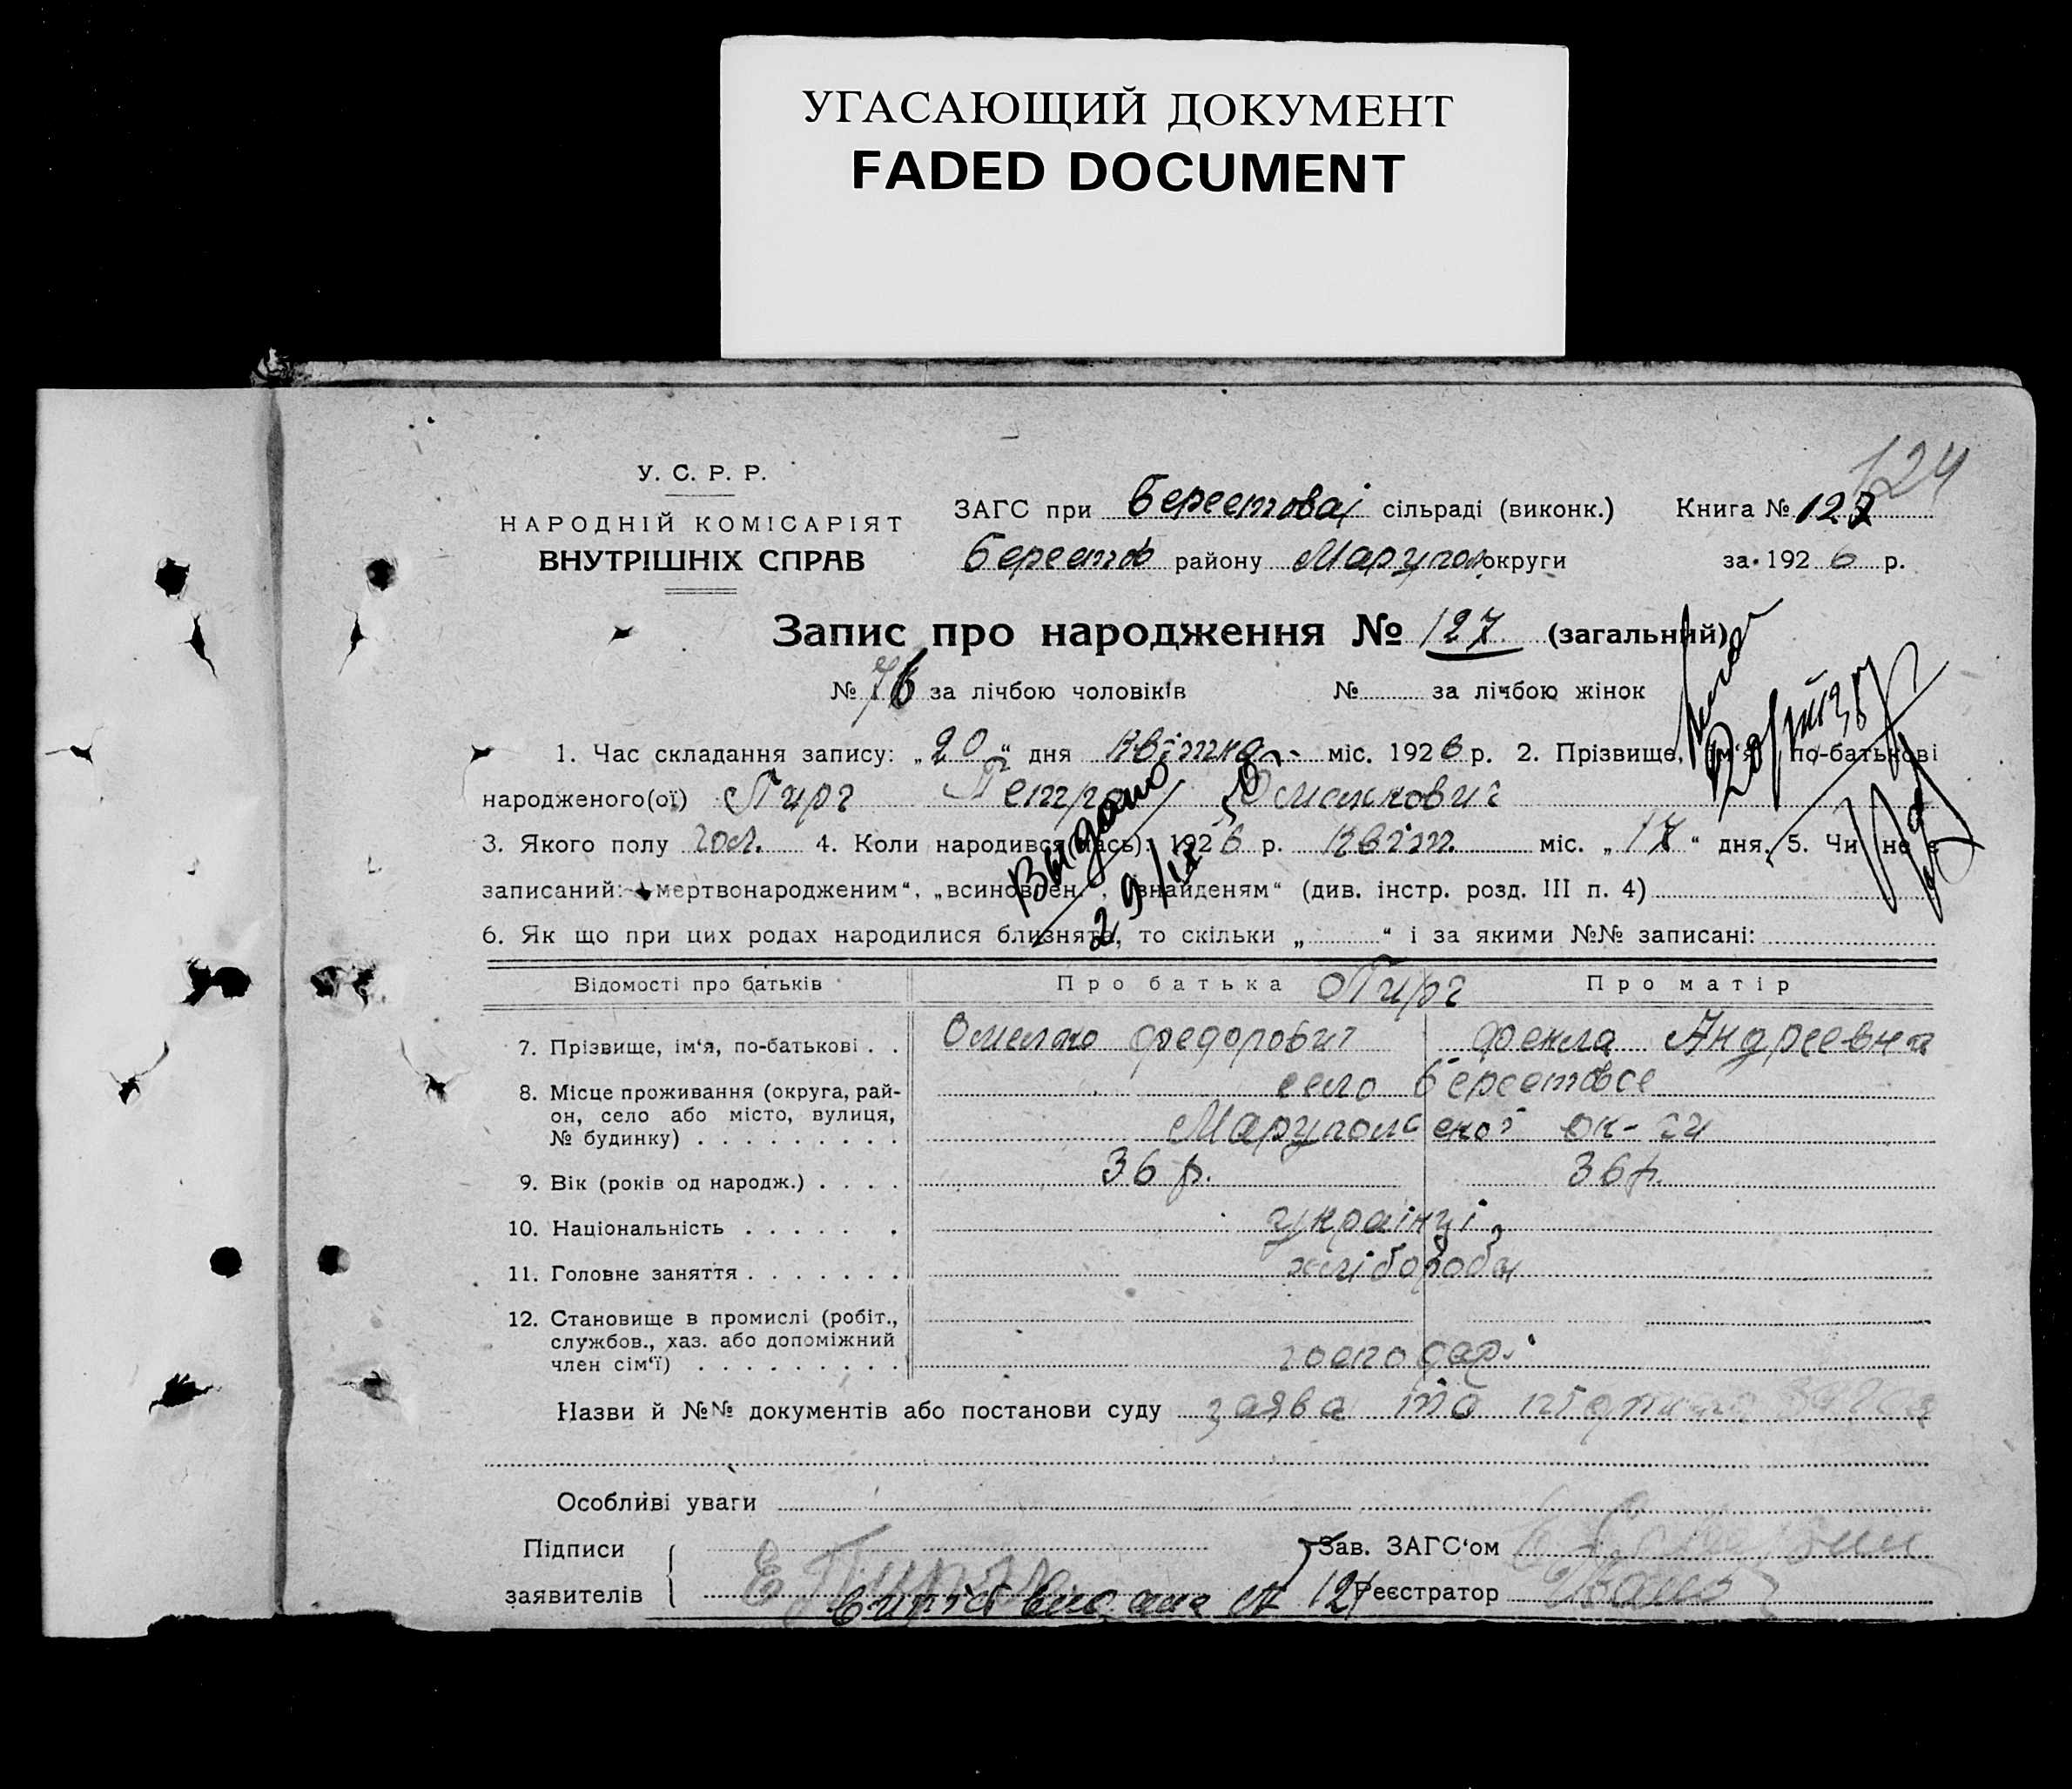 УГАСАЮЩИЙ ДОКУМЕНТ
FADED DOCUMENT
124
У. С. Р. Р.
НАРОДНІЙ КОМІСАРІЯТ
ВНУТРІШНІХ СПРАВ
ЗАГС при Берестовай сільраді (виконк.) Книга № 127
Берестов району Маруполь округи за 1926 р.
Запис про народження № 127 (загальний)
№ 76 за лічбою чоловіків № за лічбою жінок
1. Час складання запису: „20“ дня Квітня міс. 1926 р. 2. Прізвище, ім'я, по-батькові
народженого(ої) Пирг Петро Омелянович
3. Якого полу чол. 4. Коли народився (лась): 1926 р. Квіт. міс. „17“ дня. 5. Чи не є
записаний: „мертвонародженим“, „всиновлен.“, „знайденям“ (див. інстр. розд. III п. 4)
Выдано
29/IX
6. Як що при цих родах народилися близнята, то скільки „ “ і за якими №№ записані:
Відомості про батьків Про батька Пирг Про матір
7. Прізвище, ім'я, по-батькові . . Омелько Федорович Фекла Андреевна
8. Місце проживання (округа, рай- село Берестовое
он, село або місто, вулиця,
№ будинку) . . . . . . . . . Марупольской ок-ги
9. Вік (років од народж.) . . . . 36 р. 36 р.
10. Національність . . . . . . українці
11. Головне заняття . . . . . . . хлібороби
12. Становище в промислі (робіт.,
службов., хаз. або допоміжний
член сім'ї) . . . . . . . . . господарі
Назви й №№ документів або постанови суду заява та
Особливі уваги
Підписи Зав. ЗАГС'ом
заявителів Е Пирг Реєстратор